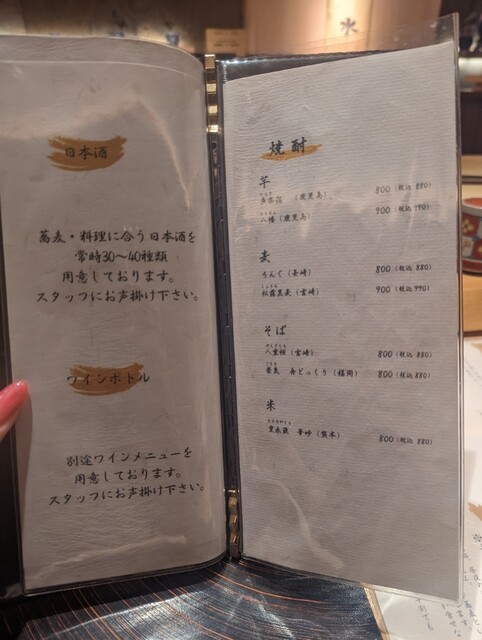 日本酒
蕎麦・料理に合う日本酒を
常時30～40種類
用意しております。
スタッフにお声掛け下さい。
ワインボトル
別途ワインメニューを
用意しております。
スタッフにお声掛け下さい。
焼酎
芋
(鹿児島) 800(税込 880)
八幡(鹿児島) 900(税込 990)
麦
ちんぐ(長崎) 800(税込 880)
松露黒麦(宮崎) 900(税込 990)
そば
(宮崎) 800(税込 880)
舟どっくり(福岡) 800(税込 880)
米
豊永蔵 (熊本) 800(税込 880)
水